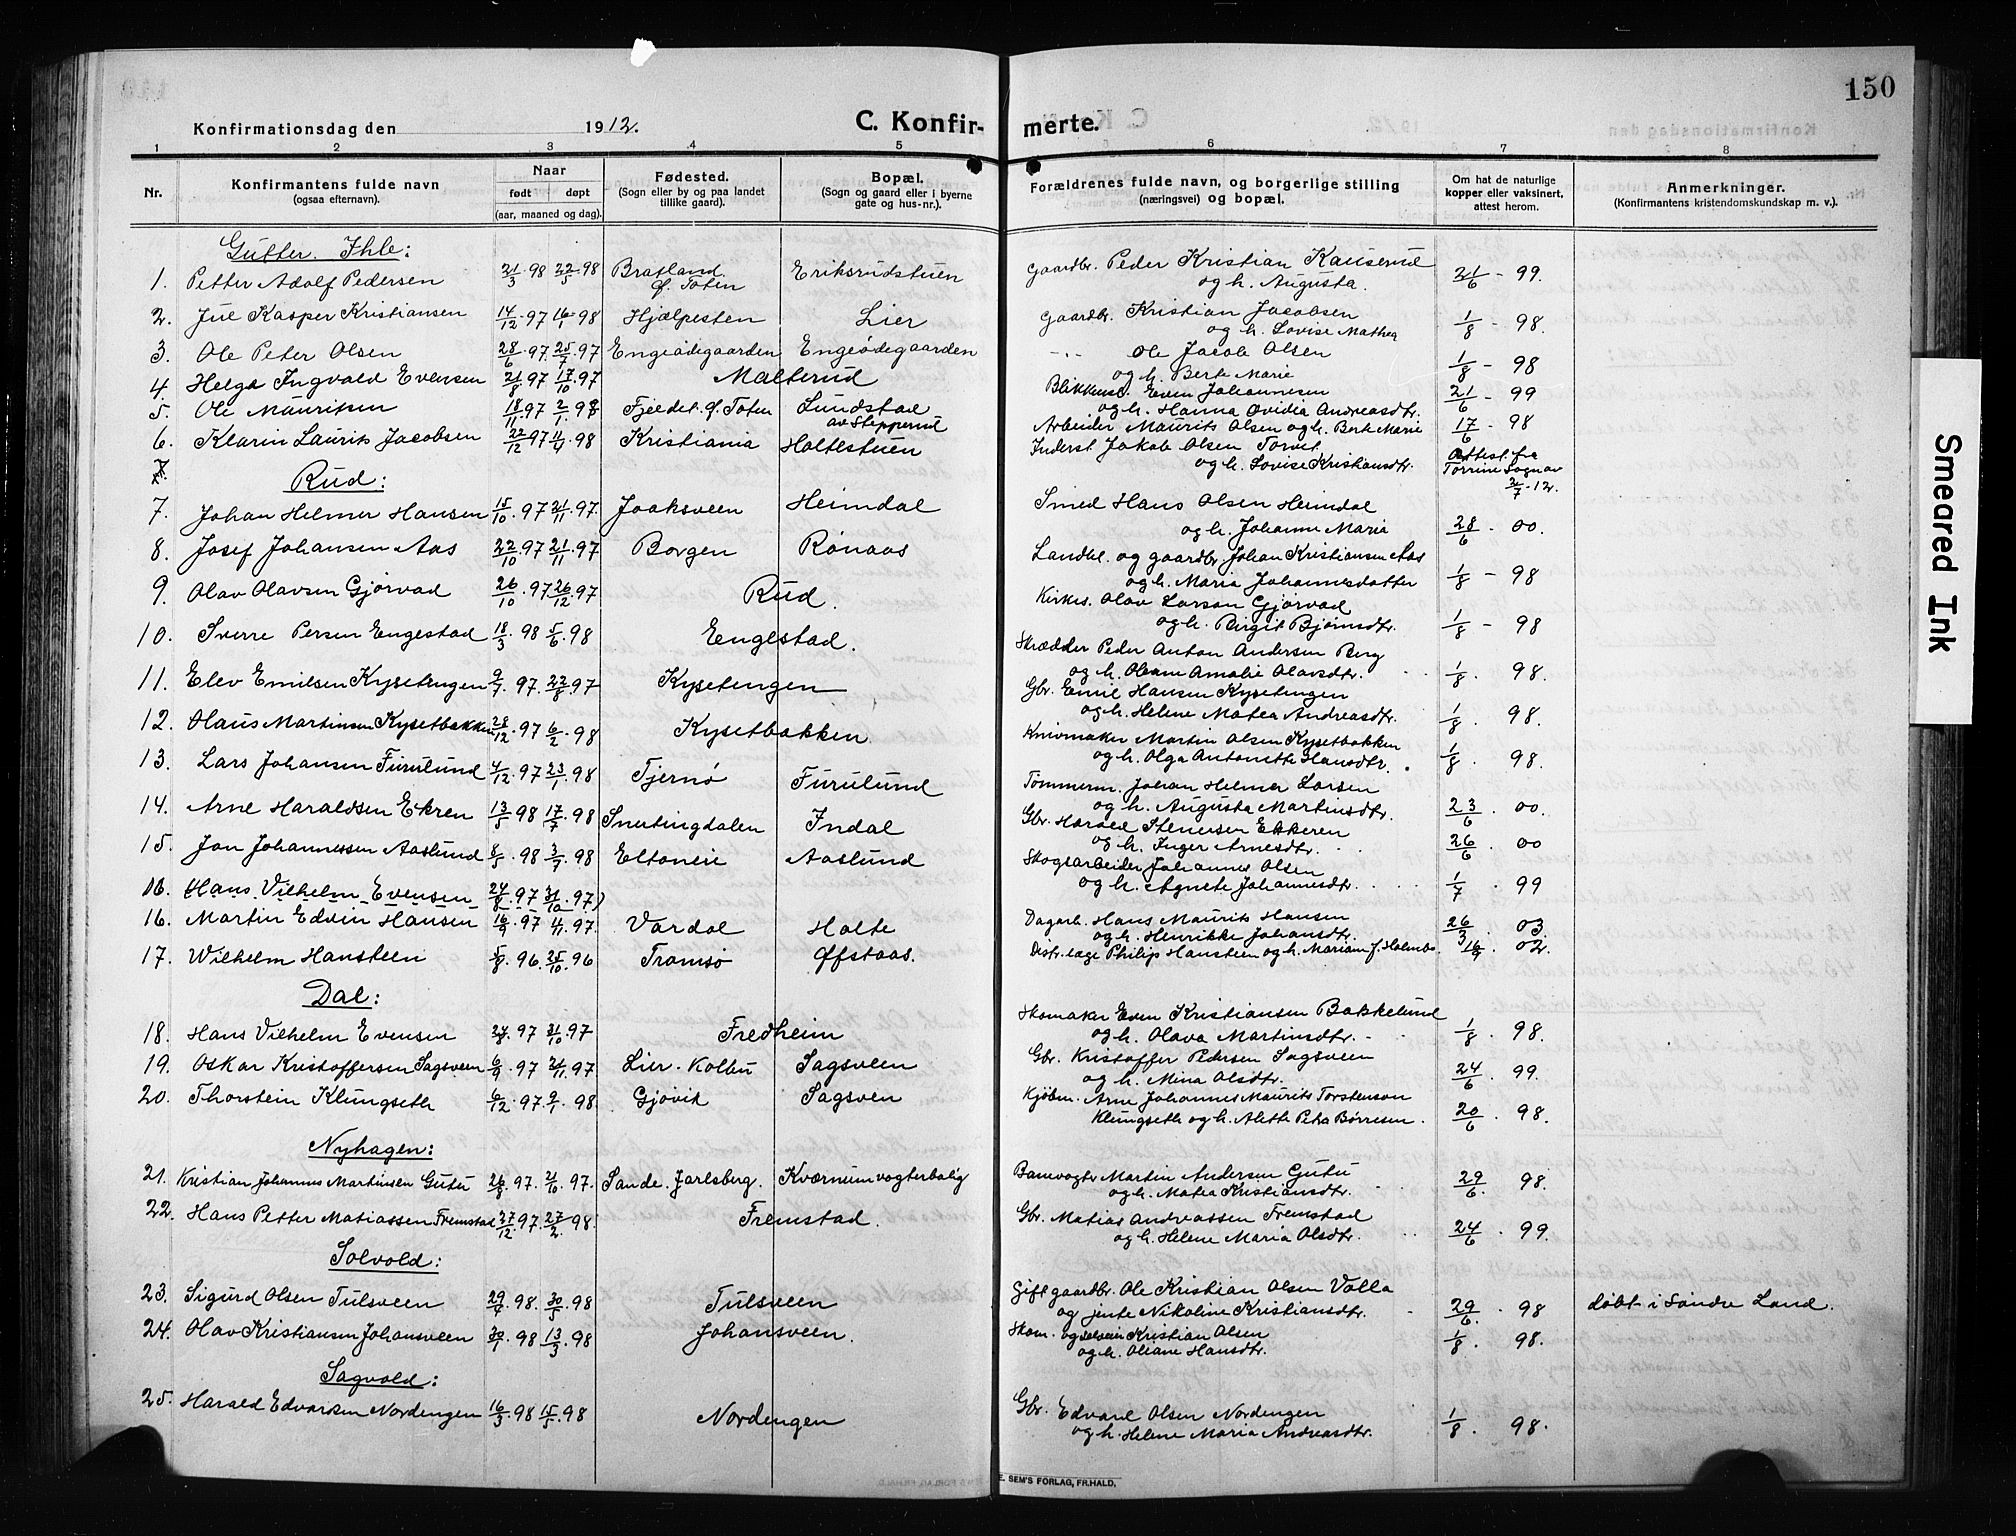 150
Konfirmationsdag den 1912.
C. Konfirmerte.
1 2 3 4 5 6 7 8
Nr.
Konfirmantens fulde navn
(ogsaa efternavn).
Naar
født døpt
(aar, maaned og dag).
Fødested.
(Sogn eller by og paa landet
tillike gaard).
Bopæl.
(Sogn og gaard eller i byerne
gate og hus-nr.).
Forældrenes fulde navn, og borgerlige stilling
(næringsvei) og bopæl.
Om hat de naturlige
kopper eller vaksinert,
attest herom.
Anmerkninger.
(Konfirmantens kristendomskundskap m. v.).
Gutter. Ihle:
1. Petter Adolf Pedersen 21/3 98 22/5 98 Bratland Ø. Toten Eriksrudstuen Gaardbr. Peder Kristian Kauserud 21/6 - 99.
og h. Augusta.
2. Jul Kasper Kristiansen 14/12 97 16/1 98 Hjælpesten Lier Gaardbr. Kristian Jacobsen 1/8 - 98.
og h. Lovise Mathea
3. Ole Peter Olsen 28/6 97 25/7 97 Engeødegaarden Engeødegaarden -"- Ole Jacob Olsen 1/8 - 98
og h. Berte Marie
4. Helge Ingvald Evensen 21/8 97 17/10 97 Malterud Blikkensl. Even Johannesen 21/6 - 99
og h. Hanna Ovidia Andreasdtr.
5. Ole Mauritsen 18/11 97 2/1 98 Fjeldet Ø. Toten Lundstad av Stepperud Arbeider Maurits Olsen og h. Berte Marie 17/6 - 98
6. Klarin Laurits Jacobsen 22/12 97 11/4 98 Kristiania Holtestuen Inderst Jakob Olsen Torvet Attest fra
og h. Lovise Kristiansdtr. Torrine Sogn av
2/7 - 12.
7.
Rud:
7. Johan Helmer Hansen 15/10 97 21/11 97 Jaaksveen Heimdal Smed Hans Olsen Heimdal
og h. Johanne Maria 28/6 - 00.
8. Josef Johansen Aas 22/10 97 21/11 97 Borgen Rønaas Landhl. og gaardbr. Johan Kristiansen Aas
og h. Maria Johannesdatter 1/8 - 98
9. Olav Olavsen Gjørvad 26/10 97 26/12 97 Rud. Kirkes. Olav Larson Gjørvad
og h. Birgit Bjørnsdtr. 1/8 - 98
10. Sverre Persen Engestad 18/3 98 5/6 98 Engestad. Skrædder Peder Anton Andersen Berg
og h. Oleane Amalie Olavsdtr. 1/8 . 98.
11. Elev Emilsen Kysetengen 9/7 97. 22/8 97 Kysetengen Gbr. Emil Hansen Kysetengen
og h. Helene Matea Andreasdtr. 1/8 . 98.
12. Hans Martinsen Kysetbakken 28/12 97 6/2 98 Kysetbakken Knivmaker Martin Olsen Kysetbakken
og h. Olga Antonette Hansdtr. 1/8 . 98.
13. Lars Johansen Furulund 4/12 97 23/1 98 Tjernø Furulund Tømmerm. Johan Helmer Larsen
og h. Augusta Martinsdtr. 23/6 . 00.
14. Arne Haraldsen Ekren 13/5 98 17/7 98 Snertingdalen Indal Gbr. Harald Stenersen Ekkeren
og h. Inger Arnesdtr. 26/6 . 00
15. Jon Johannessen Aaslund 8/5 98 3/7 98 Eltoneie Aaslund Skogsarbeider Johannes Olsen
og h. Agnete Johannesdtr. 1/7 . 99
16. (Hans Vilhelm Evensen 24/8 97 31/10 97)
16. Martin Edvin Hansen 16/9 97 4/11 97. Vardal Holte Dagarb. Hans Maurits Hansen 26/3 . 03.
og h. Henrikke Johansdtr.
17. Wilhelm Hansteen 5/8 96. 25/10 96 Tromsø Øfstaas. Distr.læge Philip Hansteen og h. Mariam f. Holmbo. 16/9 . 02.
Dal:
18. Hans Vilhelm Evensen 24/8 97 31/10 97 Fredheim Skomaker Even Kristiansen Bakkelund
og h. Olava Martinsdtr. 1/8 . 98.
19. Oskar Kristoffersen Sagsveen 6/9 97 21/11 97 Lier. Kolbu Sagsveen Gbr. Kristoffer Pedersen Sagsveen
og h. Mina Olsdtr. 24/6 . 99.
20. Thorstein Klungseth 6/12 97 9/1 98 Gjøvik Sagsven Kjøbm. Arne Johannes Maurits Torstenson
Klungseth og h. Alette Petra Børresen. 20/6 . 98.
Nyhagen:
21. Kristian Johannes Martinsen Gutu 26/8 97. 2/10 97. Sande. Jarlsberg. Kværnumvogterbolig Banevogter Martin Andersen Gutu
og h. Matea Kristiansdtr. 29/6. 98.
22. Hans Petter Matiassen Fremstad 27/12 97. 27/2 98. Fremstad. Gbr. Matias Andreassen Fremstad
og h. Helene Maria Olsdtr. 24/6 . 99.
Solvold:
23. Sigurd Olsen Tulsveen 29/4 98. 30/5 98 Tulsveen Gift gaardbr. Ole Kristian Olsen Valla
og jente Nikoline Kristiansdtr. 29/6. 98 døbt i Søndre Land.
24. Olav Kristiansen Johansveen 30/1 98 13/3 98 Johansveen. Skom. og selveier Kristian Olsen
og h. Oleane Hansdtr. 1/8 . 98.
Sagvold:
25. Harald Edvardsen Nordengen 16/3 98 15/5 98 Nordengen Gbr. Edvard Olsen Nordengen
og h. Helene Maria Andreasdtr. 1/8 . 98.
E. SEM'S FORLAG, FR.HALD.
Smeared Ink